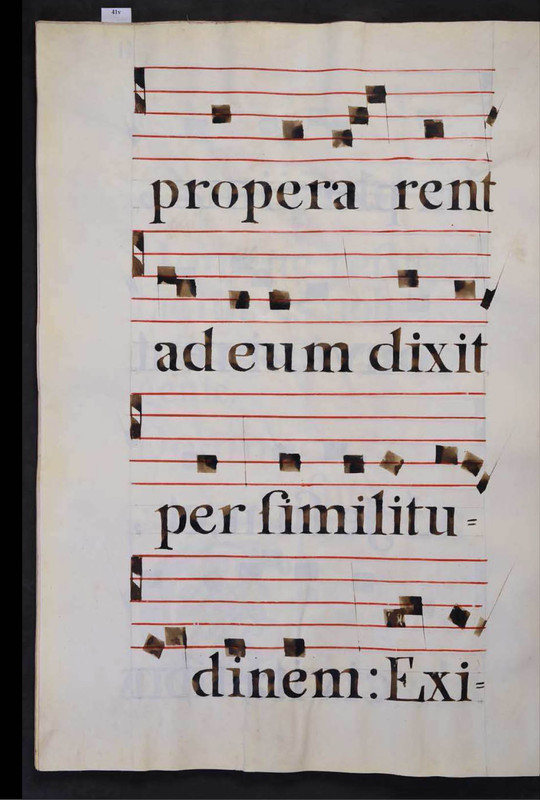 propera rent
ad eum dixit
per ſimilitu=
dinem: Exi=